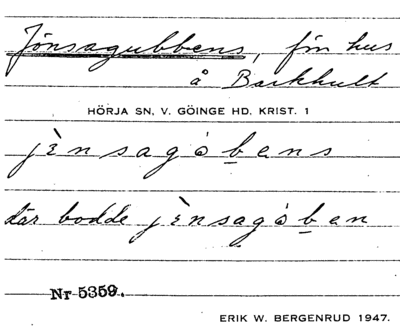 Jönsagubbens, fm hus
å Barkhult
HÖRJA SN, V. GÖINGE HD, KRIST. 1
jènsagòbens
där bodde jènsagòben
Nr 5359.
ERIK W. BERGENRUD 1947.